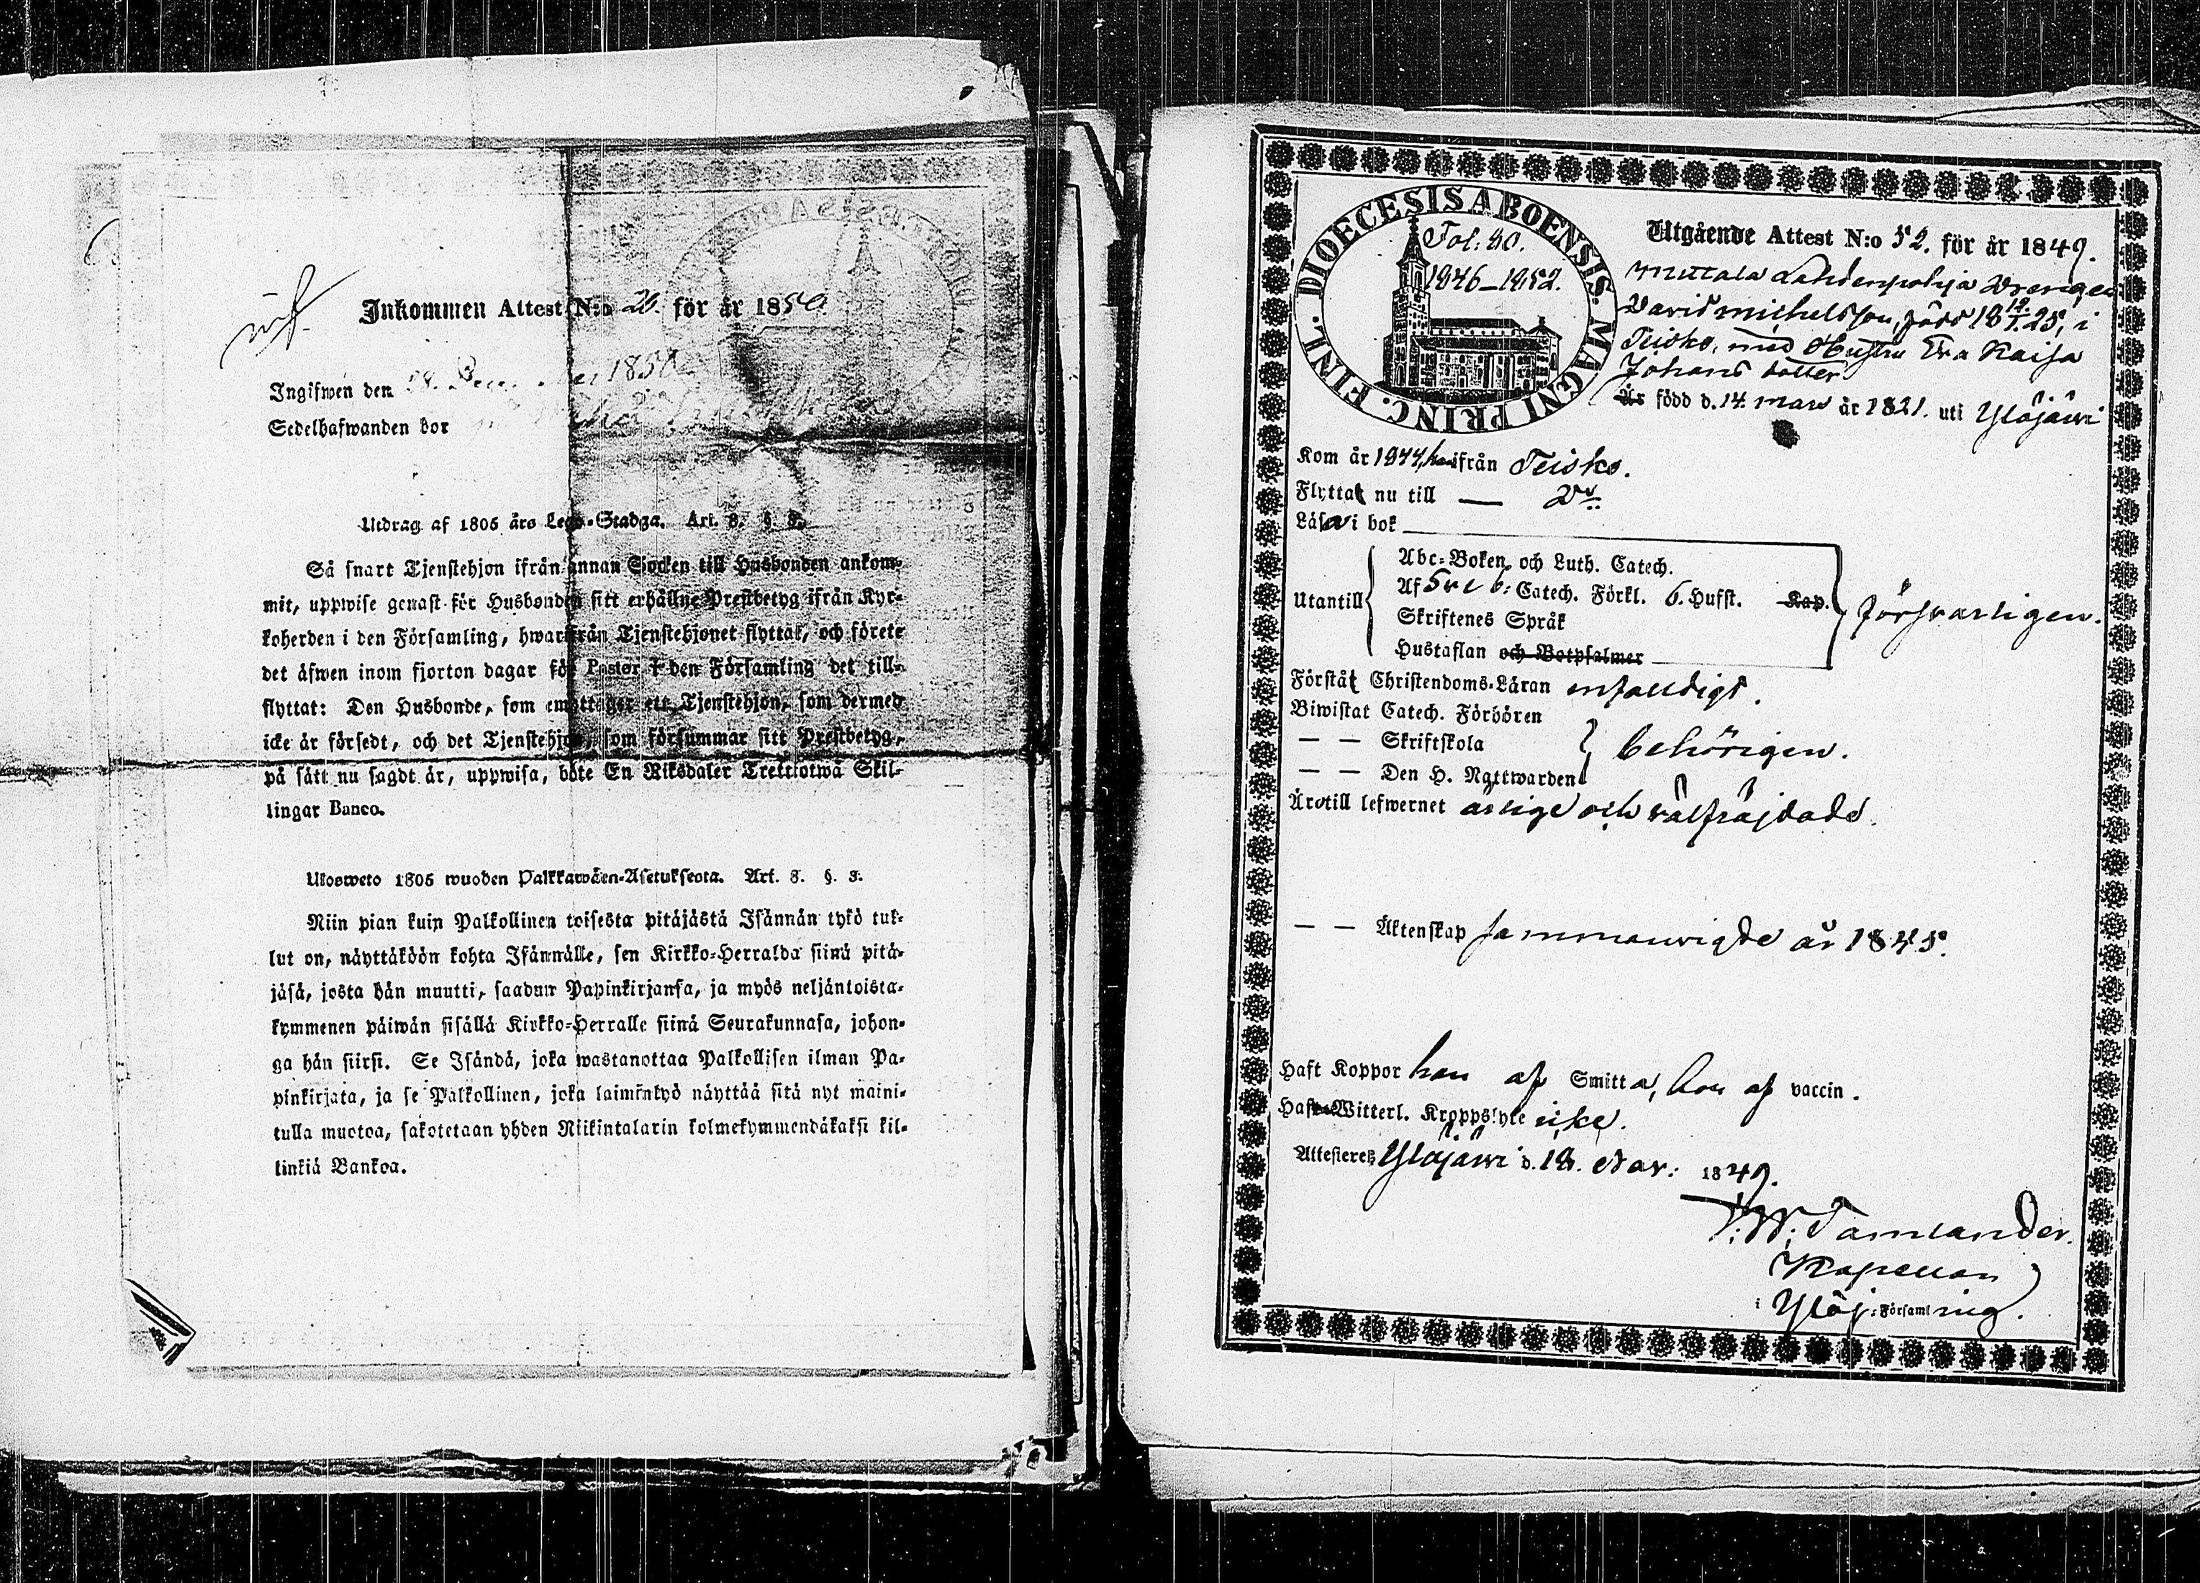 Inkommen Attest N:o 26. för år 1850.
Ingifwen den 1850
Sedelhafwanden bor
Utdrag af 1805 års Lego-Stadga. Art. 8. §. 3.
Så snart Tjenstehjon ifrån annan Socken till Husbonden ankom-
mit, uppwise genast för Husbonden sitt erhållne Prestbetyg ifrån Kyr-
koherden i den Församling, hwarifrån Tjenstehjonet flyttat, och förete
det äfwen inom fjorton dagar för Pastor i den Församling det till-
flyttat: Den Husbonde, som emottager ett Tjenstehjon, som dermed
icke är försedt, och det Tjenstehjon, som försummar sitt Prestbetyg,
på sätt nu sagdt är, uppwisa, böte En Riksdaler Trettiotwå Skil-
lingar Banco.
Ulosweto 1805 wuoden Palkkawäen-Asetuksesta. Art. 8. §. 3.
Niin pian kuin Palkollinen toisesta pitäjästä Isännän tykö tul-
lut on, näyttäköön kohta Isännälle, sen Kirkko-Herralda siinä pitä-
jäsä, josta hän muutti, saadun Papinkirjansa, ja myös neljäntoista-
kymmenen päiwän sisällä Kirkko-Herralle siinä Seurakunnasa, johon-
ga hän siirsi. Se Isändä, joka wastanottaa Palkollisen ilman Pa-
pinkirjata, ja se Palkollinen, joka laiminlyö näyttää sitä nyt maini-
tulla muotoa, sakotetaan yhden Riikintalarin kolmekymmendäkaksi kil-
linkiä Bankoa.
DIOECESIS ABOENSIS. MAGNI PRINC. FINL.
Fol: 90.
1846-1852.
Utgående Attest N:o 52. för år 1849.
Mutala Lahdenpohja Drengen
David Michelsson, född 18 12/1 25, i
Teisko, med Hustru Eva Kaisa
Johans dotter
Är född d. 14. Mars år 1821. uti Ylöjärvi
Kom år 1844, han ifrån Teisko.
Flytta nu till — Do
Läsa i bok
Utantill
Abc-Boken och Luth. Catech.
Af Sveb: Catech. Förkl. 6. Hufst. Kap.
Skriftenes Språk
Hustaflan och Botpsalmer
försvarligen.
Förstå Christendoms-Läran enfaldigt.
Biwistat Catech. Förhören
— — Skriftskola
— — Den H. Nattwarden
behörigen.
Äro till lefwernet ärlige och välfräjdade.
— — Äktenskap sammanvigde år 1845.
Haft Koppor han af Smitta, hon af vaccin.
Haft Witterl. Kroppslyte icke.
Attesterer Ylöjärvi d. 18. Nov: 1849.
F. W. Tamlander.
Kapellan
i Ylöj: Församling.